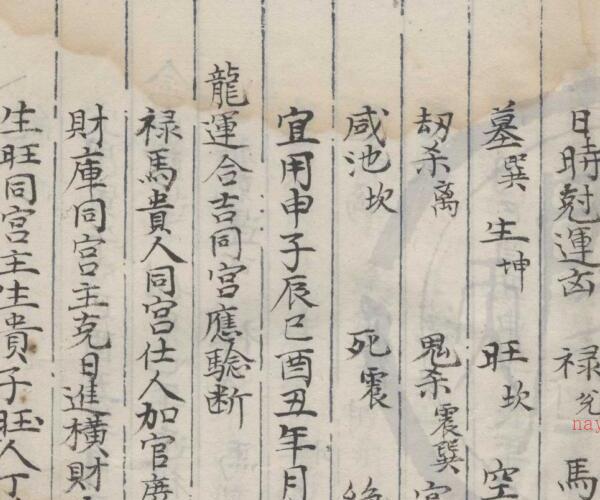 日時尅運凶 禄兊 馬
墓巽 生坤 旺坎 空
劫杀離 鬼杀震巽 官
咸池坎 死震 絶
宜用申子辰巳酉丑年月
龍運合吉同宮應驗断
禄馬貴人同宮仕人加官廣
財庫同宮主克日進横財
生旺同宮主生貴子旺人丁
nay